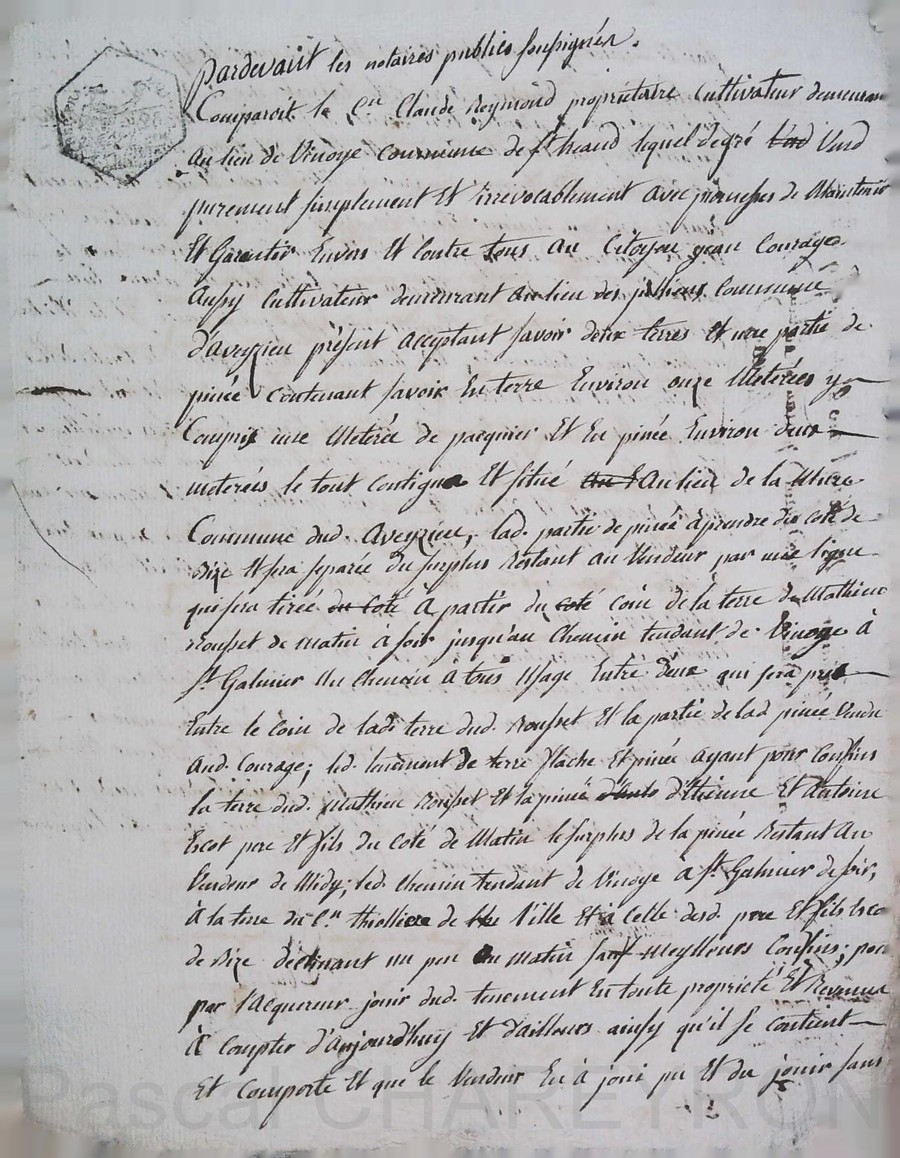 Pardevant les notaires publics soussignés.
Comparoit le C.en Claude Reymond propriétaire Cultivateur demeurant
au lieu de Vinoye commune de St heand lequel de gré Vend
purement simplement Et irrevocablement avec promesses de Maintenir
Et Garentir Envers Et Contre tous au Citoyen jean Courage
aussy Cultivateur demeurant au lieu des Commune
d'aveyzieu présent acceptant savoir deux terres Et une partie de
pinée Contenant savoir En terre Environ onze Meterées y
Compris une Meterée de pacquier Et En pinée Environ deux
meterées le tout contigue Et situé au lieu de la Mure
Commune dud. aveyzieu, lad. partie de pinée à prendre du coté de
Bize Et sera separée du surplus Restant au Vendeur par une ligne
qui sera tirée du coté a partir du coté coin de la terre de Mathieu
Rousset de matin à soir jusqu'au Chemin tendant de Vinoye à
St Galmier un Chemin à tous Usage Entre deux qui sera pris
Entre le coin de lad. terre dud. Rousset Et la partie de lad. pinée Vendue
aud. Courage; led. tenement de terre flache Et pinée ayant pour Confins
la terre dud. Mathieu Rousset Et la pinée d'Etienne Et Antoine
Escot pere Et fils du Coté de Matin le surplus de la pinée Restant au
Vendeur de Midy; led. Chemin tendant de Vinoye a St Galmier de soir,
à la terre du C.en thiolliere de Ville Et à Celle desd. pere Et fils Esco
de Bize déclinant un peu au matin sauf meylleurs Confins; pour
par l'acquereur jouir dud. tenement En toute proprieté Et Revenus
à Compter d'aujourd'huy Et d'ailleurs ainsy qu'il se Contient
Et Comporte Et que le Vendeur En à joui pu Et du jouir sans
Pascal CHAREYRON